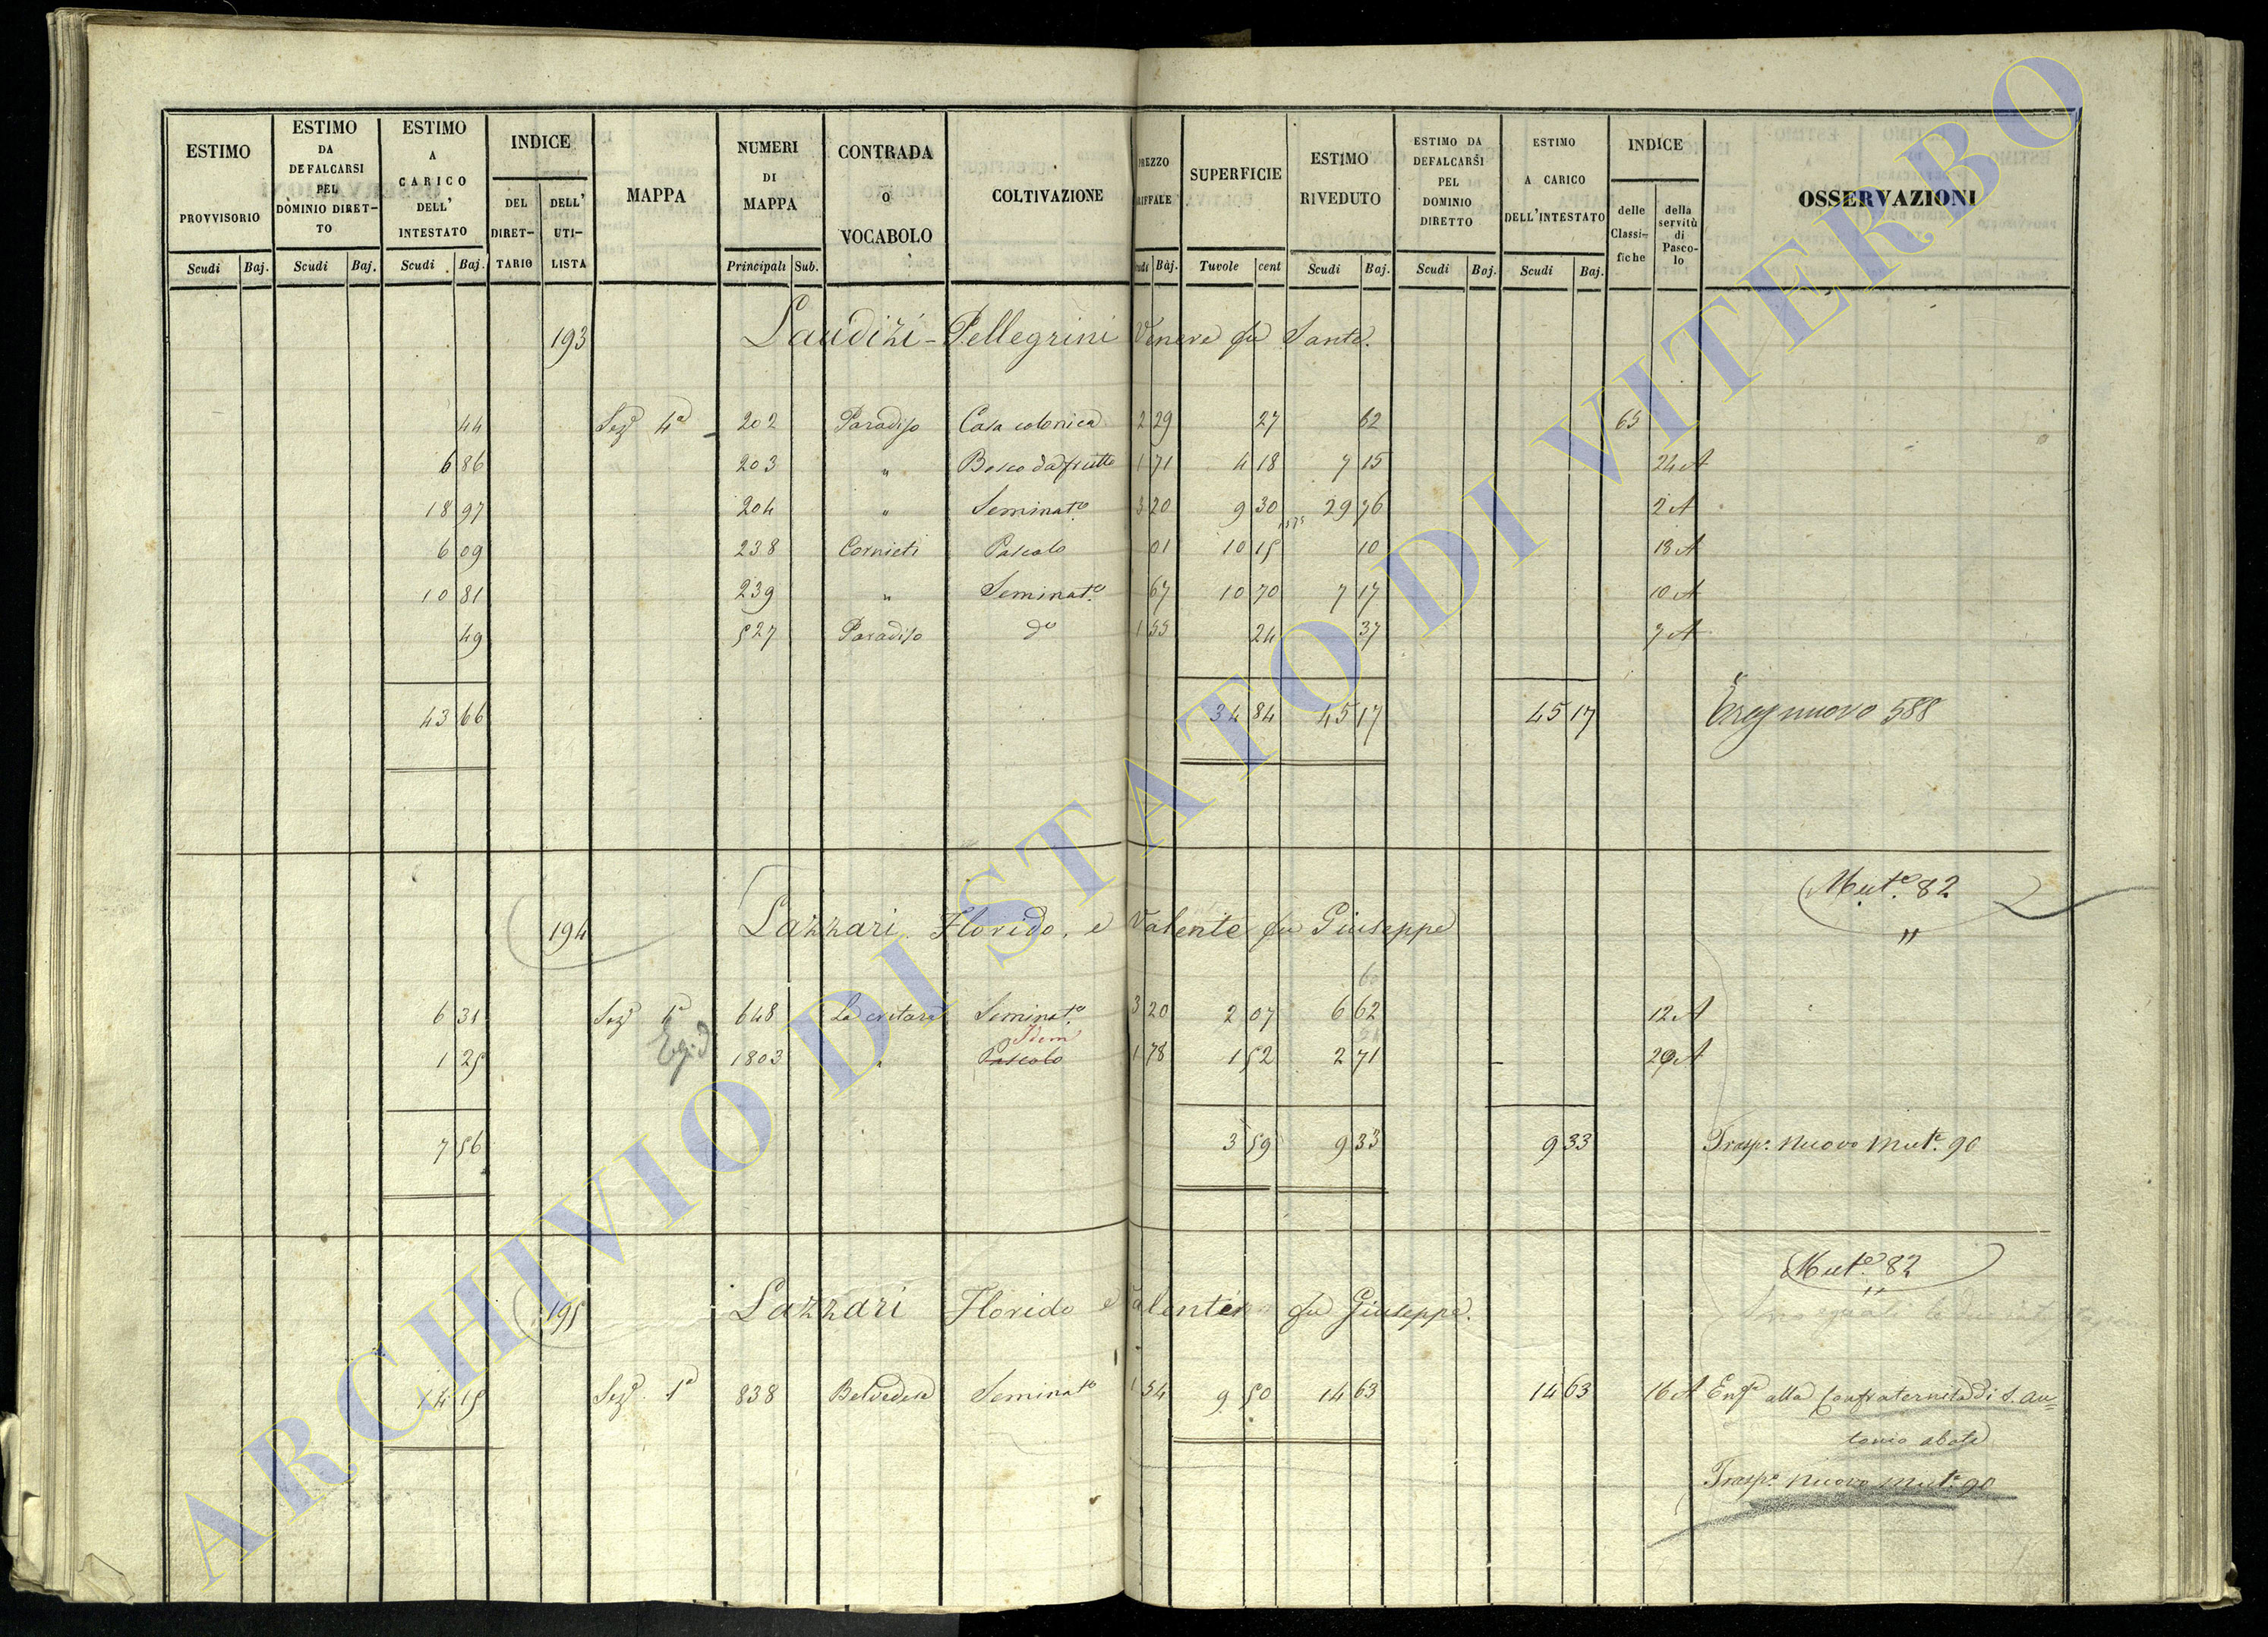 ESTIMO PROVVISORIO | ESTIMO DA DEFALCARSI PEL DOMINIO DIRETTO | ESTIMO A CARICO DELL' INTESTATO | INDICE | MAPPA | NUMERI DI MAPPA | CONTRADA o VOCABOLO | COLTIVAZIONE | PREZZO TARIFFALE | SUPERFICIE | ESTIMO RIVEDUTO | ESTIMO DA DEFALCARSI PEL DOMINIO DIRETTO | ESTIMO A CARICO DELL'INTESTATO | INDICE | OSSERVAZIONI
DEL DIRETTARIO | DELL' UTILISTA | delle Classifiche | della servitù di Pascolo
Scudi | Baj. | Scudi | Baj. | Scudi | Baj. | Principali | Sub. | Scudi | Baj. | Tuvole | cent | Scudi | Baj. | Scudi | Baj. | Scudi | Baj.
193 Laudizi-Pellegrini Venere fu Sante.
44 Sezᵉ 4ª 202 Paradiso Casa colonica 2 29 27 62 65
6 86 203 " Bosco da frutto 1 71 4 18 7 15 24 A
18 97 204 " Seminatº 3 20 9 30 29 76 2 A
6 09 238 Cornieti Pascolo 01 10 15 10 18 A
10 81 239 " Seminatº 67 10 70 7 17 10 A
49 527 Paradiso dº 1 55 24 37 7 A
43 66 34 84 45 17 45 17 nuovo 588
Mutᵉ 82
194 Lazzari Florido, e Valente fu Giuseppe "
6 31 Sezᵉ 1ª 648 Seminatº 3 20 2 07 6 62 12 A
Idem
1 25 1803 " Pascolo 1 78 1 52 2 71 29 A
7 56 3 59 9 33 9 33 Traspº nuovo mutᵉ 90
Mutᵉ 82
195 Lazzari Florido e Valente fu Giuseppe. "
14 15 Sezᵉ 1ª 838 Belvedere Seminatº 1 54 9 50 14 63 14 63 16 A Enfª alla Confraternita di S. An=
tonio abate
Traspº nuovo mutᵉ 90
ARCHIVIO DI STATO DI VITERBO